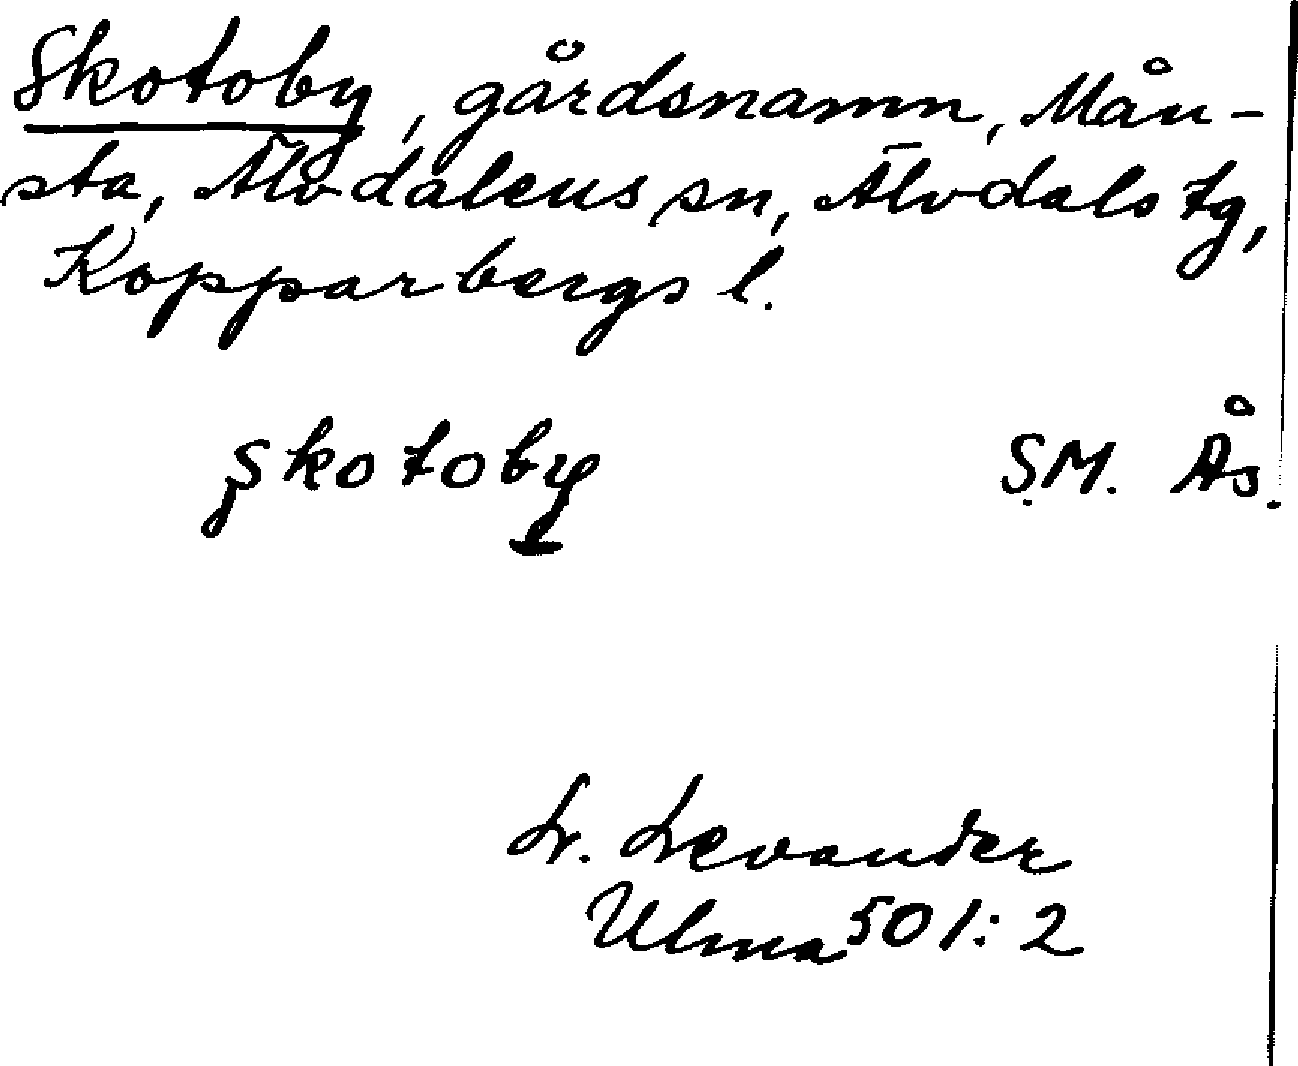 Skotoby, gårdsnamn, Mån-
sta, Älvdalens sn, Älvdals tg,
Kopparbergs l.
skotoby S.M. Ås.
L. Levander
Ulma 501:2